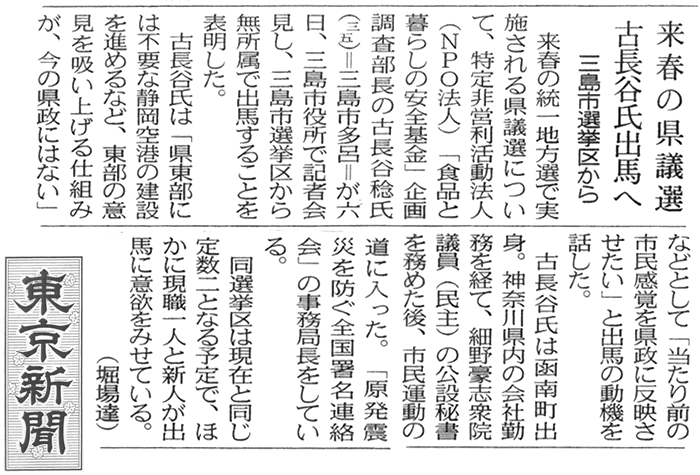 来春の県議選
古長谷氏出馬へ
三島市選挙区から
来春の統一地方選で実
施される県議選につい
て、特定非営利活動法人
（ＮＰＯ法人）「食品と
暮らしの安全基金」企画
調査部長の古長谷稔氏
（三五）＝三島市多呂＝が六
日、三島市役所で記者会
見し、三島市選挙区から
無所属で出馬することを
表明した。
古長谷氏は「県東部に
は不要な静岡空港の建設
を進めるなど、東部の意
見を吸い上げる仕組み
が、今の県政にはない」
などとして「当たり前の
市民感覚を県政に反映さ
せたい」と出馬の動機を
話した。
古長谷氏は函南町出
身。神奈川県内の会社勤
務を経て、細野豪志衆院
議員（民主）の公設秘書
を務めた後、市民運動の
道に入った。「原発震
災を防ぐ全国署名連絡
会」の事務局長をしてい
る。
同選挙区は現在と同じ
定数二となる予定で、ほ
かに現職一人と新人が出
馬に意欲をみせている。
（堀場達）
東京新聞